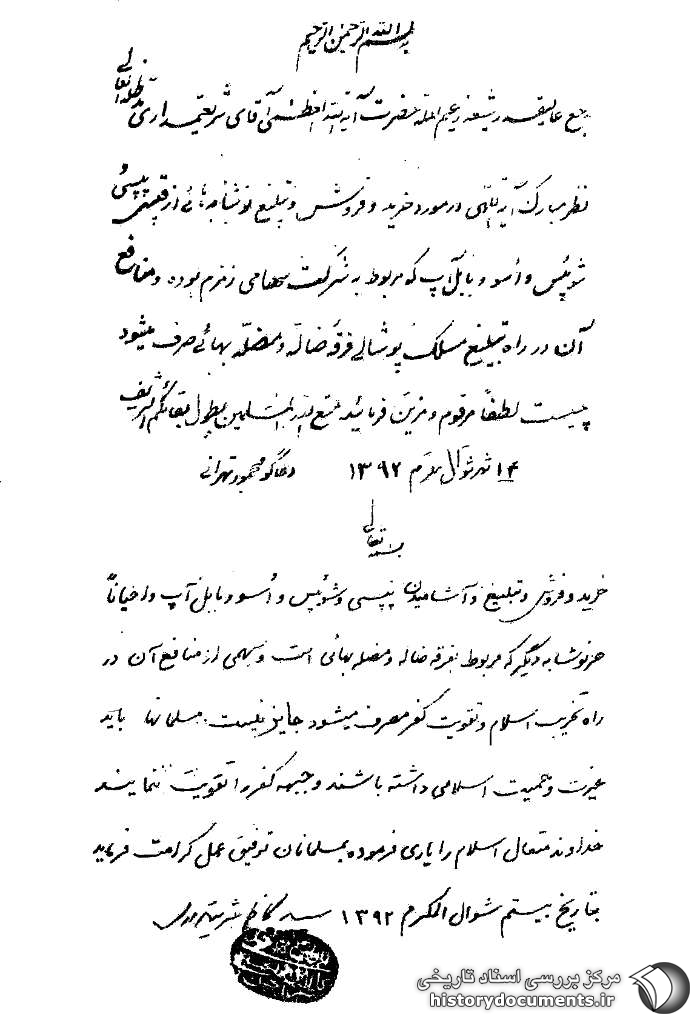 بسم الله الرحمن الرحیم
مرجع عالیقدر شیعه زعیم المله حضرت آیة الله العظمی آقای شریعتمداری مدظله العالی
نظر مبارک آیة اللهی در مورد خرید و فروش و تبلیغ نوشابه هائی از قبیل پپسی
شوئپس و اسو و بابل آپ که مربوط به شرکت سهامی زمزم بوده و منافع
آن در راه تبلیغ مسلک پوشالی فرقه ضاله و مضله بهائی صرف میشود
چیست لطفاً مرقوم و مزین فرمائید متع الله المسلمین بطول بقائکم الشریف
۱۴ شهر شوال مکرم ۱۳۹۲ دعاگو محمود تهرانی
بسمه تعالی
خرید و فروش و تبلیغ و آشامیدن پپسی و شوئپس و اسو و بابل آپ و احیاناً
هر نوشابه دیگر که مربوط بفرقه ضاله و مضله بهائی است و سهمی از منافع آن در
راه تخریب اسلام و تقویت کفر مصرف میشود جایز نیست. مسلمانها باید
غیرت و حمیت اسلامی داشته باشند و جبهه کفر را تقویت ننمایند
خداوند متعال اسلام را یاری فرموده بمسلمانان توفیق عمل کرامت فرماید
بتاریخ بیستم شوال المکرم ۱۳۹۲ سید کاظم شریعتمداری
مرکز بررسی اسناد تاریخی
historydocuments.ir